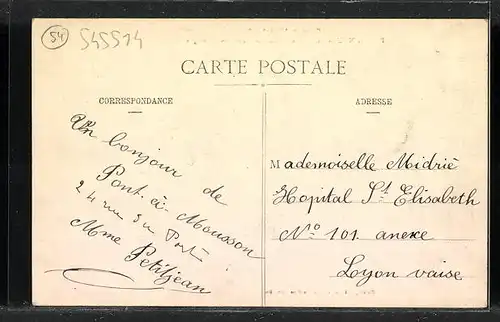 54
545514
CARTE POSTALE
CORRESPONDANCE
ADRESSE
Un bonjour de
Pont-à-Mousson
24 rue du Port
Mme Petitjean
Mademoiselle Midriè
Hopital St Elisabeth
No 101. anexe
Lyon vaise